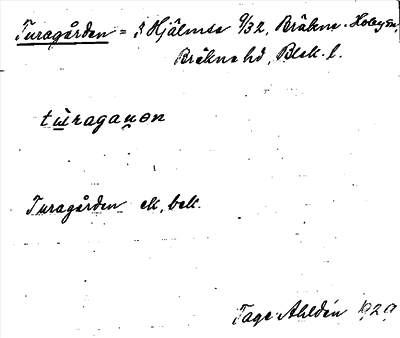 Turagården = 3 Hjälmsa 9/32, Bräkne-Hoby sn,
Bräkne hd, Blek. l.
tùraganɷn
Turagården ell, bell.
Tage Ahldén 1929